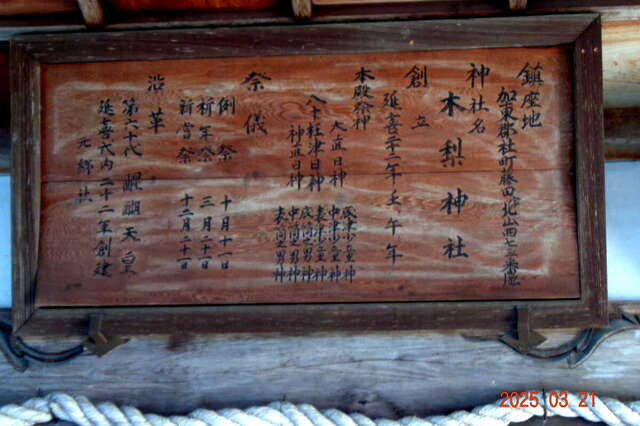 鎮座地
加東郡社町藤田字北山西七五番地
神社名
木梨神社
創立
延喜二十二年壬午年
本殿祭神
大直日神
八十枉津日神
神直日神
底津少童神
中津少童神
表津少童神
底筒男神
中筒男神
表筒男神
祭儀
例祭 十月十一日
祈年祭 三月二十一日
新嘗祭 十二月二十一日
沿革
第六十代 醍醐天皇
延喜式内二十二年創建
元郷社
2025 03 21